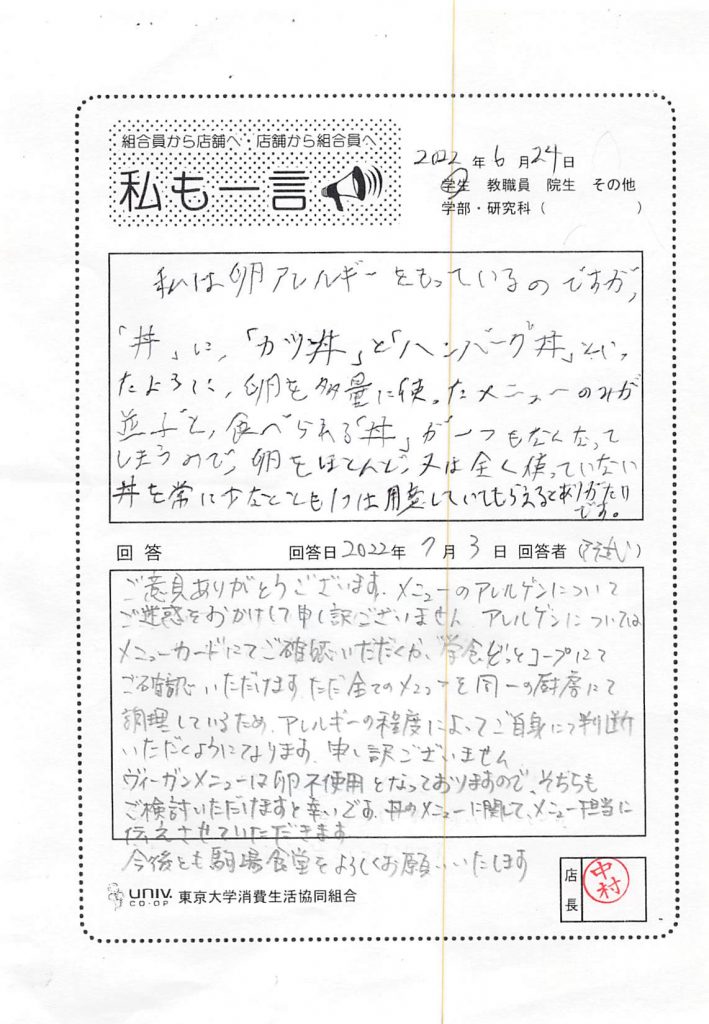 組合員から店舗へ・店舗から組合員へ
私も一言
2022年6月24日
学生 教職員 院生 その他
学部・研究科（ ）
私は卵アレルギーをもっているのですが、
「丼」に、「カツ丼」と「ハンバーグ丼」といっ
たように、卵を多量に使ったメニューのみが
並ぶと、食べられる「丼」が一つもなくなって
しまうので、卵をほとんど、又は全く使っていない
丼を常に少なくとも1つは用意していてもらえるとありがたい
です。
回答 回答日2022年7月3日 回答者（ ）
ご意見ありがとうございます。メニューのアレルゲンについて
ご迷惑をおかけして申し訳ございません アレルゲンについては
メニューカードにてご確認いただくか、学食どっとコープにて
ご確認いただけます。ただ全てのメニューを同一の厨房にて
調理しているため、アレルギーの程度によってご自身にて判断
いただくようになります。申し訳ございません
ヴィーガンメニューは卵不使用となっておりますので、そちらも
ご検討いただけますと幸いです。丼のメニューに関して、メニュー担当に
伝えさせていただきます
今後とも駒場食堂をよろしくお願いいたします
UNIV. CO-OP 東京大学消費生活協同組合
店長
中村